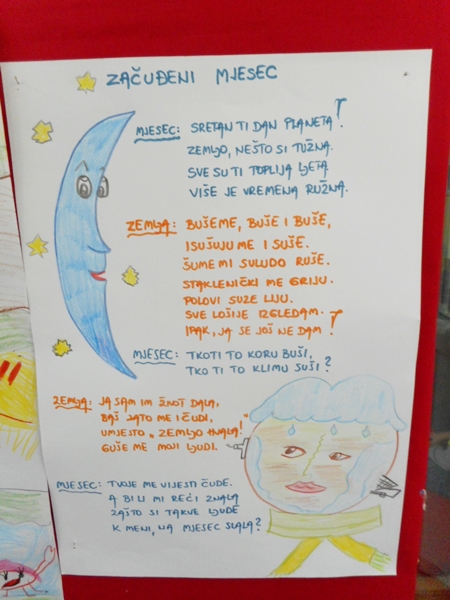 ZAČUĐENI MJESEC
MJESEC: SRETAN TI DAN PLANETA!
ZEMLJO, NEŠTO SI TUŽNA.
SVE SU TI TOPLIJA LJETA
VIŠE JE VREMENA RUŽNA.
ZEMLJA: BUŠE ME, BUŠE I BUŠE,
ISUŠUJU ME I SUŠE.
ŠUME MI SULUDO RUŠE.
STAKLENIČKI ME GRIJU.
POLOVI SUZE LIJU.
SVE LOŠIJE IZGLEDAM.
IPAK, JA SE JOŠ NE DAM!
MJESEC: TKO TI TO KORU BUŠI,
TKO TI TO KLIMU SUŠI?
ZEMLJA: JA SAM IM ŽIVOT DALA,
BAŠ ZATO ME I ČUDI,
UMJESTO „ZEMLJO HVALA!"
GUŠE ME MOJI LJUDI.
MJESEC: TVOJE ME VIJESTI ČUDE.
A BI LI MI REĆI ZNALA
ZAŠTO SI TAKVE LJUDE
K MENI, NA MJESEC SLALA?